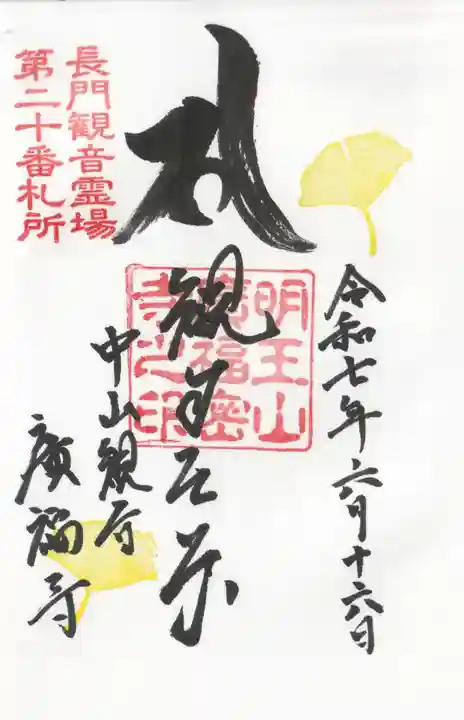 令和七年六月十六日
長門観音霊場
第二十番札所
明王山
廣福密
寺之印
中山観音
廣福寺